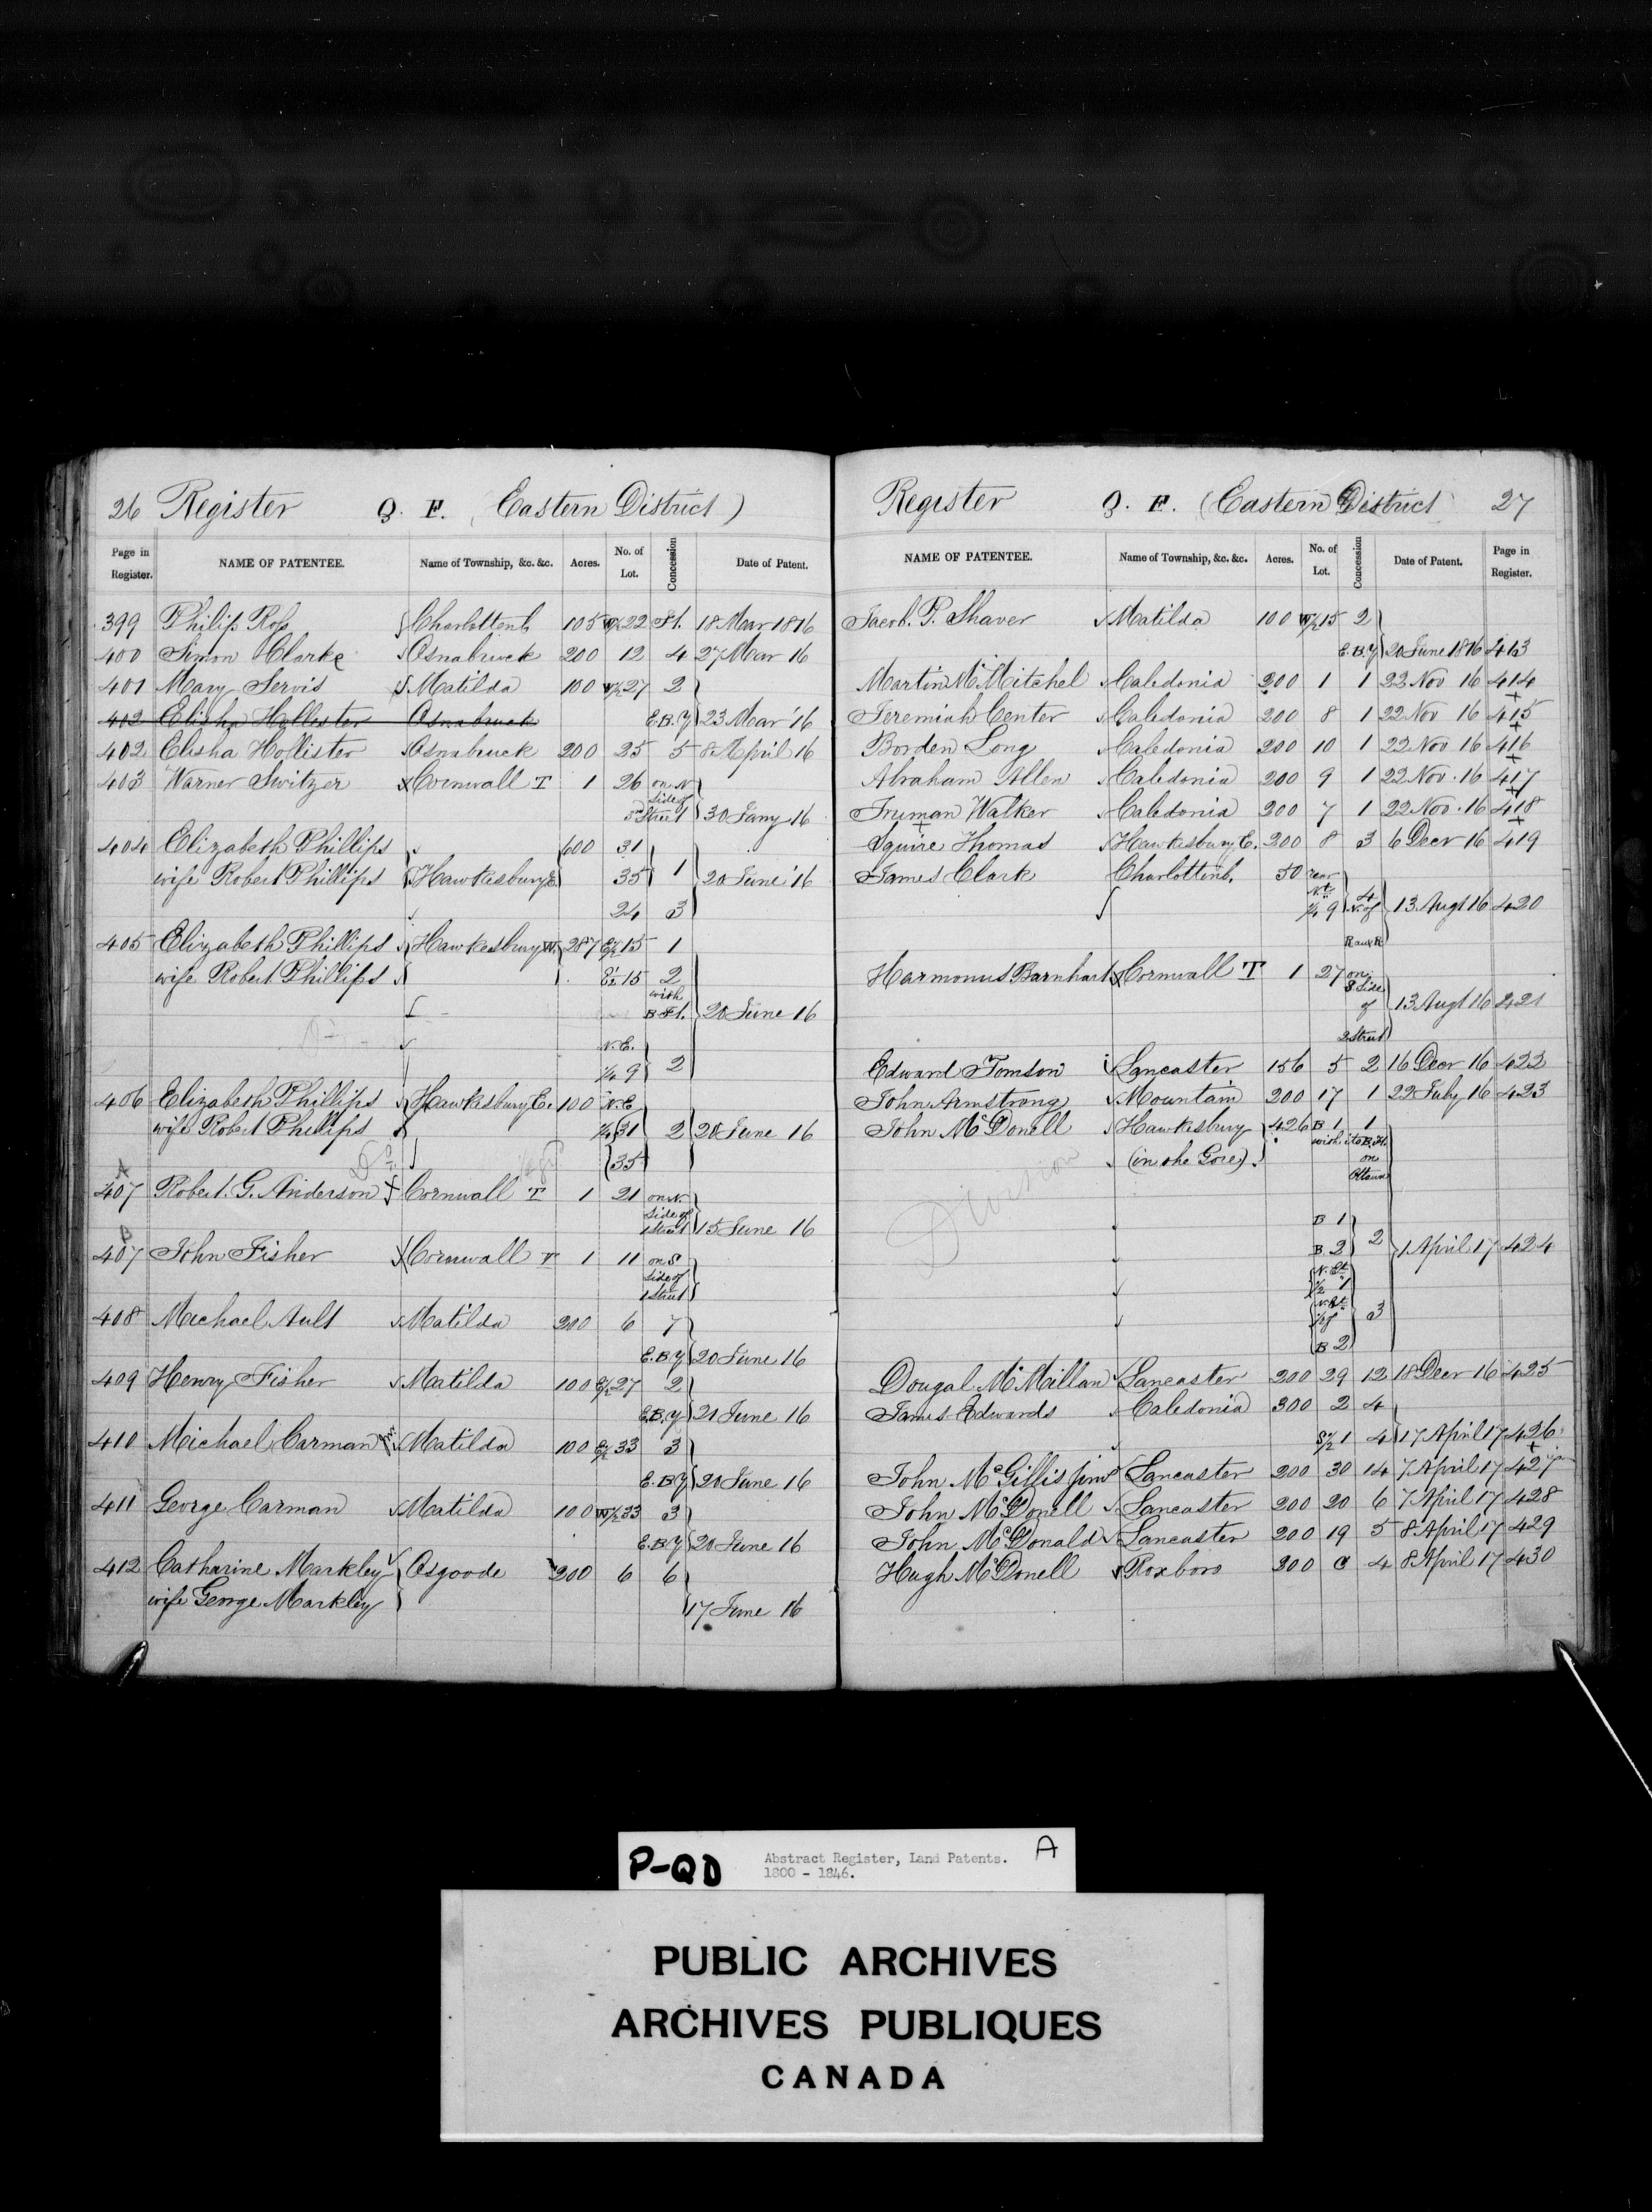 26 Register Q. F. (Eastern District)
Page in Register. NAME OF PATENTEE. Name of Township, &c. &c. Acres. No. of Lot. Concession Date of Patent.
399 Philip Ross Charlottenb 105 W½ 22 Ft. 18 Mar 1816
400 Simon Clarke Osnabruck 200 12 4 27 Mar 16
401 Mary Servis Matilda 100 W½ 27 2
402 Elisha Hollester Osnabruck E.B.Y 23 Mar '16
402 Elisha Hollister Osnabruck 200 25 5 8 April 16
403 Warner Switzer Cornwall T 1 26 on N
Side of
Street 30 Jany 16
404 Elizabeth Phillips 600 31
wife Robert Phillips Hawkesbury E. 35 1 20 June '16
24 3
405 Elizabeth Phillips Hawkesbury W. 287 E½ 15 1
wife Robert Phillips E½ 15 2
with
B Ft. 20 June 16
N.E.
¼ 9 2
406 Elizabeth Phillips Hawkesbury E. 100 N.E
wife Robert Phillips ¼ 31 2 20 June 16
35
A
407 Robert. G. Anderson Cornwall T 1 21 on N.
Side of
1 Street 15 June 16
B
407 John Fisher Cornwall T 1 11 on S
Side of
1 Street
408 Michael Ault Matilda 200 6 7
E.B.Y 20 June 16
409 Henry Fisher Matilda 100 E½ 27 2
E.B.Y 21 June 16
410 Michael Carman Matilda 100 E½ 33 3
E.B.Y 20 June 16
411 George Carman Matilda 100 W½ 33 3
E.B.Y 20 June 16
412 Catharine Markley Osgoode 200 6 6
wife George Markley
17 June 16
Register Q. F. (Eastern District 27
NAME OF PATENTEE. Name of Township, &c. &c. Acres. No. of Lot. Concession Date of Patent. Page in Register.
Jacob. P. Shaver Matilda 100 W½ 15 2
E.B.Y 20 June 1816 413
Martin McMitchel Caledonia 200 1 1 22 Nov 16 414
Jeremiah Center Caledonia 200 8 1 22 Nov 16 415
Borden Long Caledonia 200 10 1 22 Nov 16 416
Abraham Allen Caledonia 200 9 1 22 Nov. 16 417
Truman Walker Caledonia 200 7 1 22 Nov. 16 418
Squire Thomas Hawkesbury E. 200 8 3 6 Decr 16 419
James Clark Charlottenb. 50 rear
¼ 9 4 N. of 13 Augt 16 420
Harmonus Barnhart Cornwall T 1 27 on
S Side
of 13 Augt 16 421
2 Street
Edward Tomson Lancaster 156 5 2 16 Decr 16 422
John Armstrong Mountain 200 17 1 22 July 16 423
John McDonell Hawkesbury 426 B 1 1
with its B. Ft.
(in the Gore) on
Ottawa
Division
B 1
B 2 2 1 April 17 424
½ 1
3
B 2
Dougal McMillan Lancaster 200 29 12 18 Decr 16 425
James Edwards Caledonia 300 2 4
S½ 1 4 17 April 17 426
John McGillis Junr Lancaster 200 30 14 7 April 17 427
John McDonell Lancaster 200 20 6 7 April 17 428
John McDonald Lancaster 200 19 5 8 April 17 429
Hugh McDonell Roxboro 200 C 4 8 April 17 430
P-QD Abstract Register, Land Patents. A
1800 - 1846.
PUBLIC ARCHIVES
ARCHIVES PUBLIQUES
CANADA